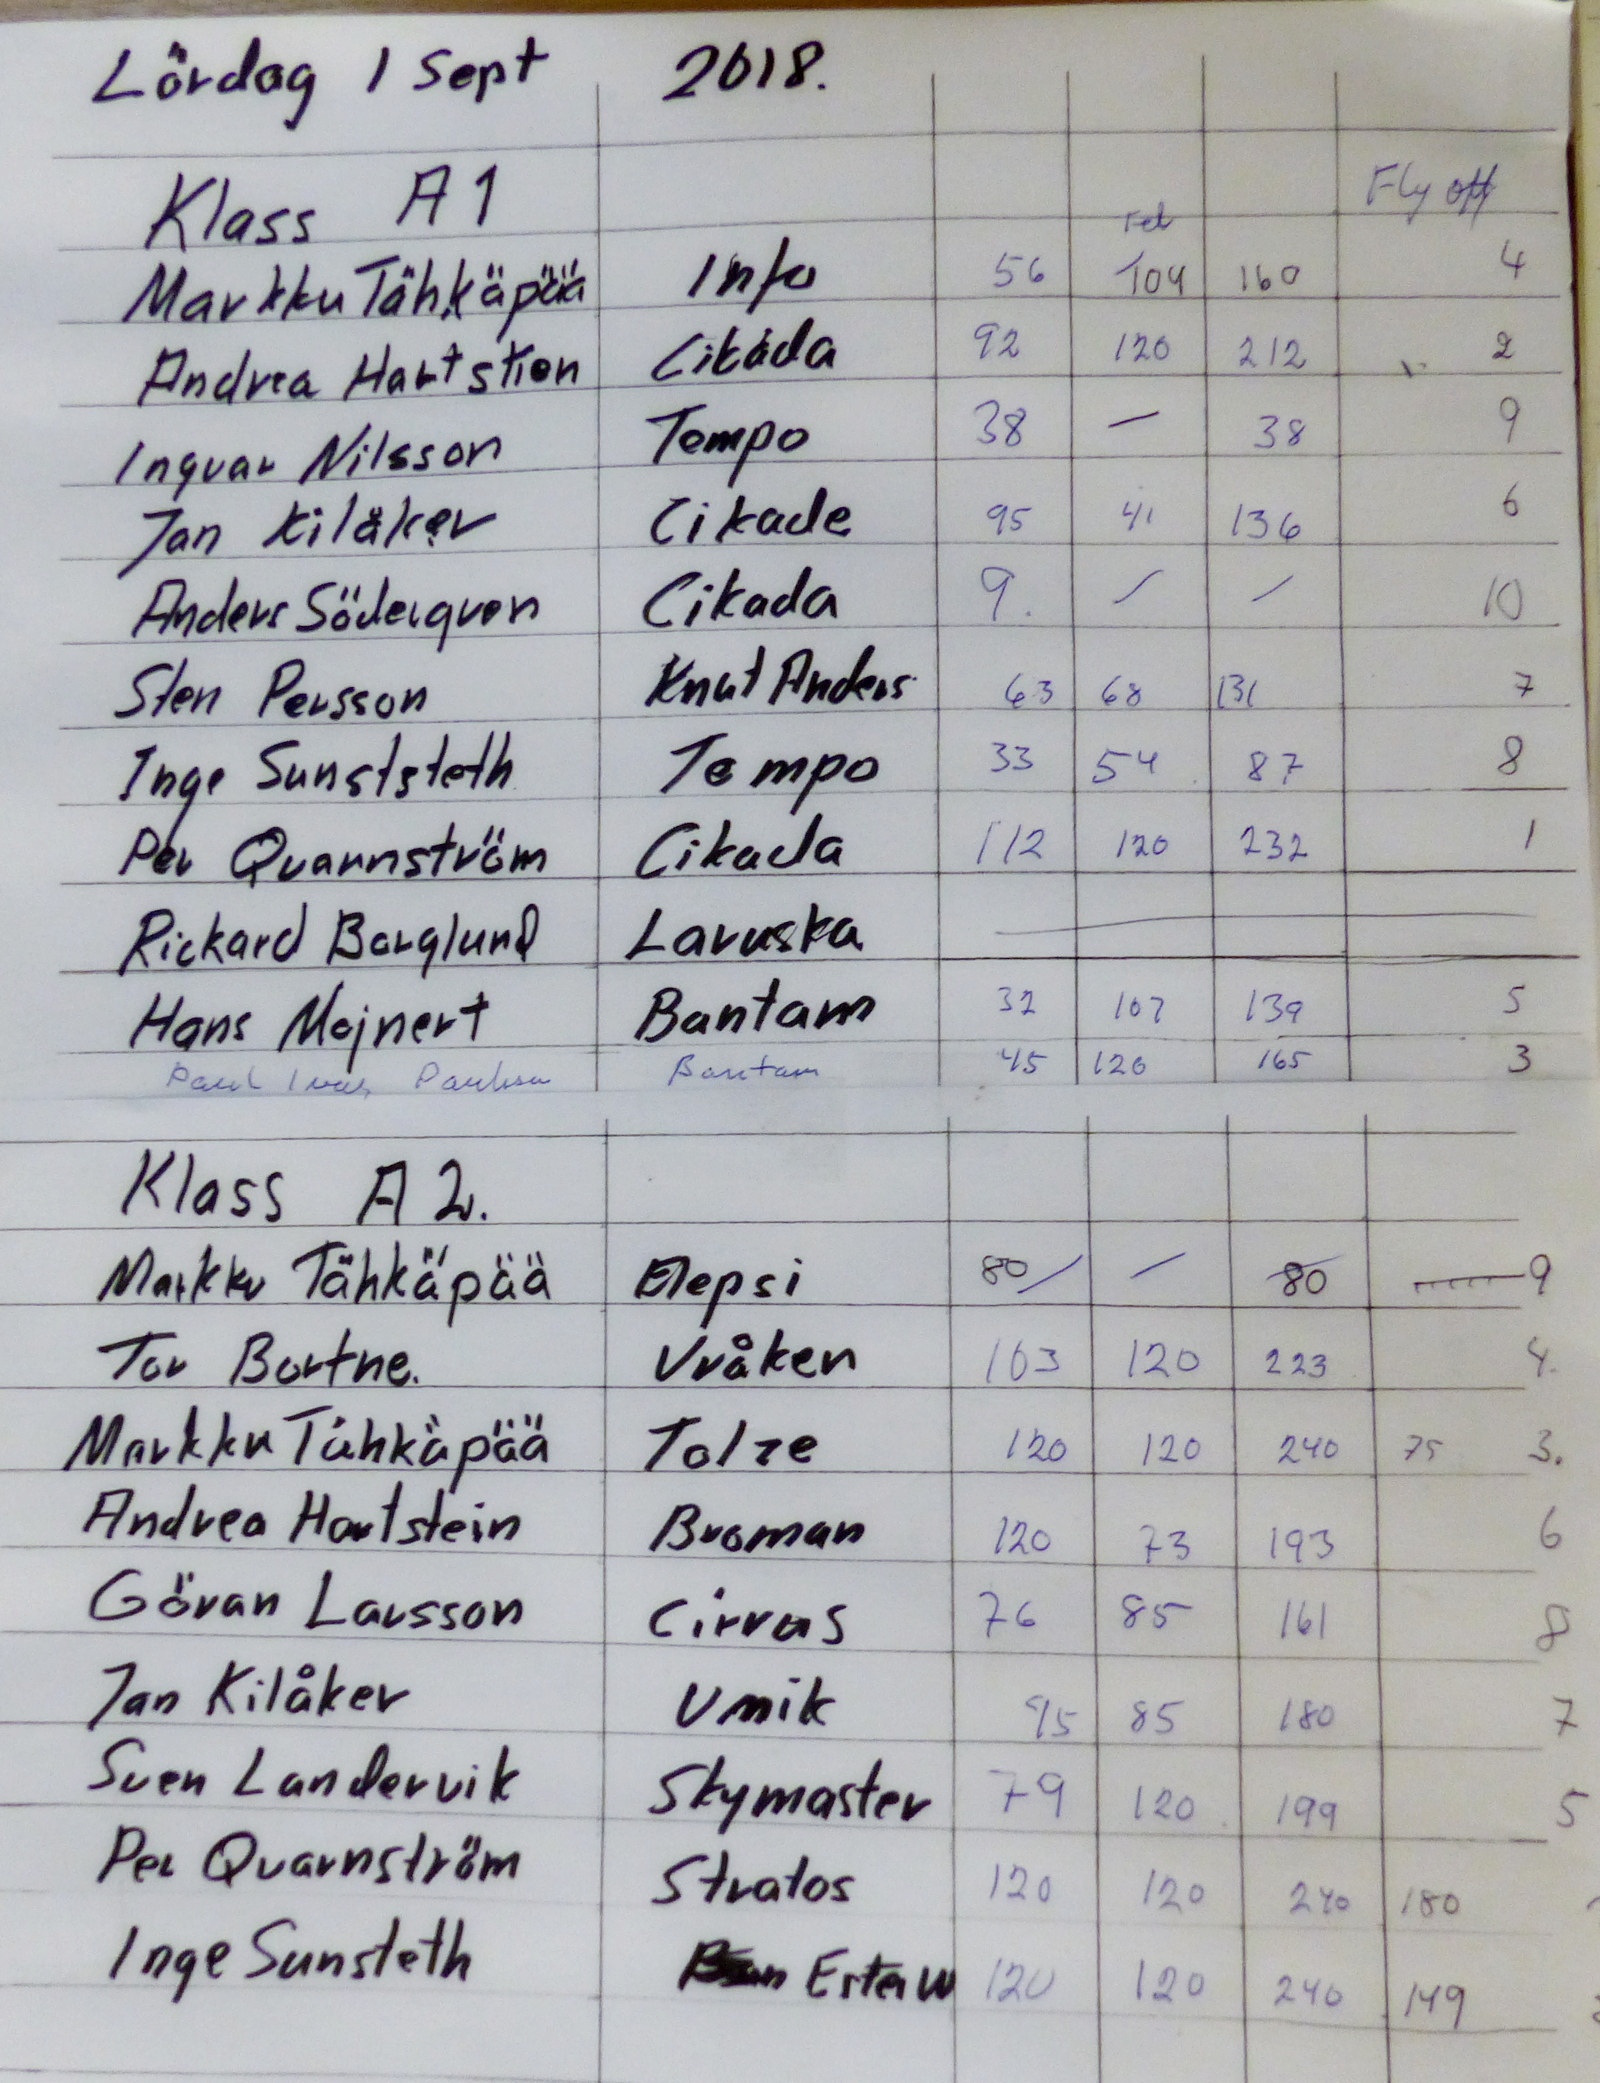 Lördag 1 Sept 2018.
Klass A1 Fly off
Markku Tähkäpää Info 56 104 160 4
Andrea Hartstien Cikada 92 120 212 2
Ingvar Nilsson Tempo 38 — 38 9
Jan Kilåker Cikade 95 41 136 6
Anders Söderqven Cikada 9. / / 10
Sten Persson Knut Anders 63 68 131 7
Inge Sunststeth Tempo 33 54 87 8
Per Quarnström Cikada 112 120 232 1
Rickard Borglund Laruska
Hans Mojnert Bantam 32 107 139 5
Bantam 45 120 165 3
Klass A2.
Markku Tähkäpää Elepsi 80 / — 80 9
Tor Bortne. Vråken 103 120 223 4.
Markku Tähkäpää Tolze 120 120 240 75 3.
Andrea Hartstein Broman 120 73 193 6
Göran Larsson Cirrus 76 85 161 8
Jan Kilåker Unik 95 85 180 7
Sven Landervik Skymaster 79 120 199 5
Per Quarnström Stratos 120 120 240 180
Inge Sunsteth 120 120 240 149